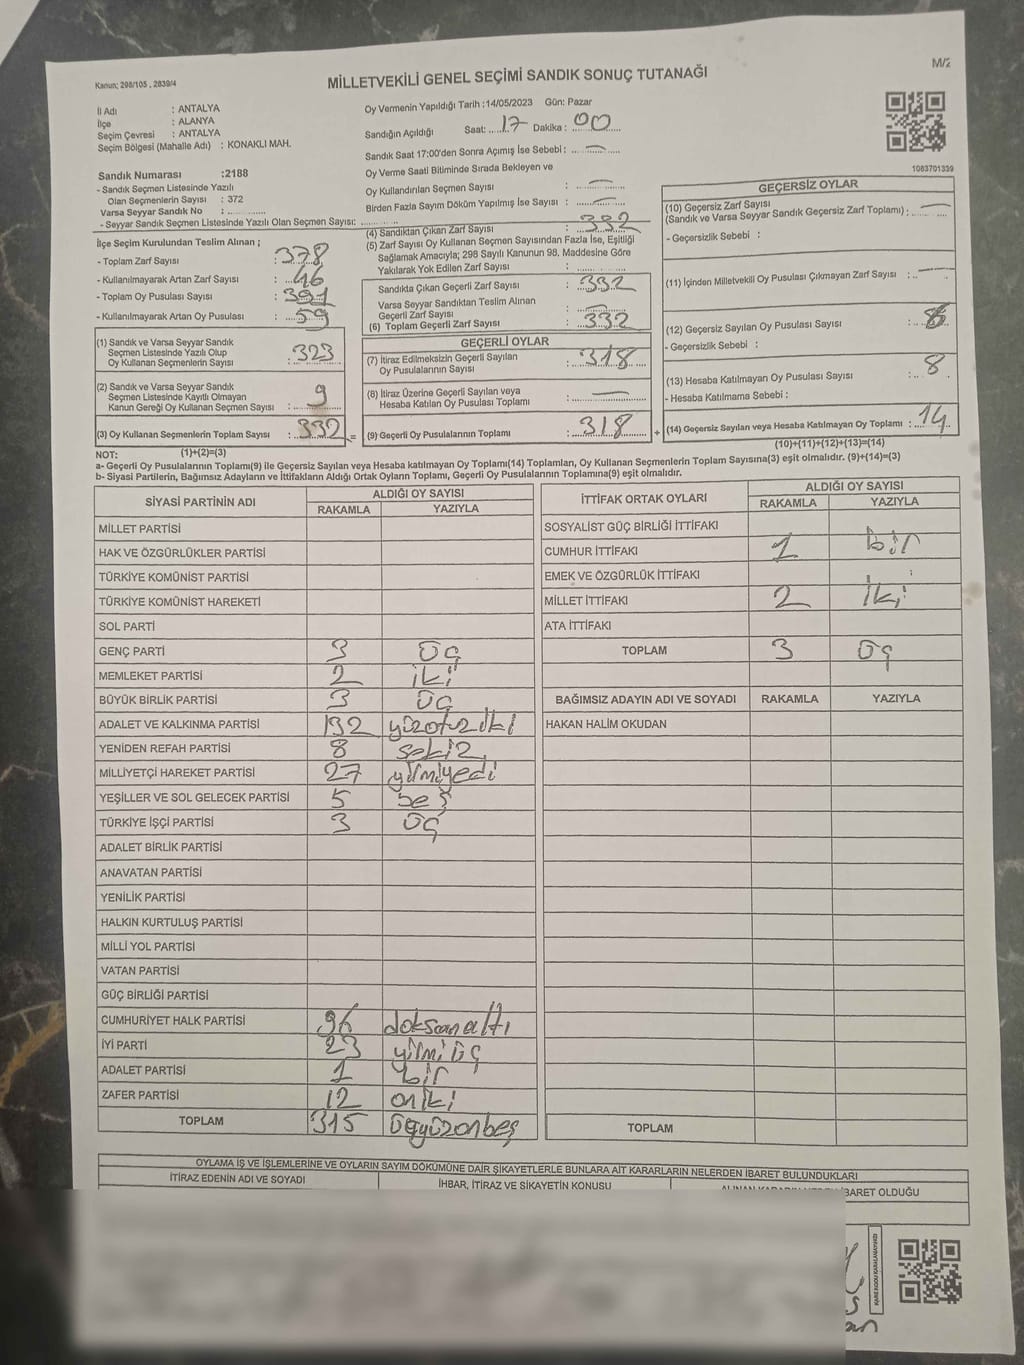 M/2
Kanun: 298/105 , 2839/4
MİLLETVEKİLİ GENEL SEÇİMİ SANDIK SONUÇ TUTANAĞI
İl Adı : ANTALYA
İlçe : ALANYA
Seçim Çevresi : ANTALYA
Seçim Bölgesi (Mahalle Adı) : KONAKLI MAH.
Oy Vermenin Yapıldığı Tarih :14/05/2023 Gün: Pazar
Sandığın Açıldığı Saat: 17 Dakika: 00
Sandık Saat 17:00'den Sonra Açılmış İse Sebebi: —
Oy Verme Saati Bitiminde Sırada Bekleyen ve
Oy Kullandırılan Seçmen Sayısı : —
Birden Fazla Sayım Döküm Yapılmış İse Sayısı : —
1083701339
Sandık Numarası :2188
- Sandık Seçmen Listesinde Yazılı
Olan Seçmenlerin Sayısı : 372
Varsa Seyyar Sandık No :
- Seyyar Sandık Seçmen Listesinde Yazılı Olan Seçmen Sayısı:
İlçe Seçim Kurulundan Teslim Alınan ;
- Toplam Zarf Sayısı : 378
- Kullanılmayarak Artan Zarf Sayısı : 46
- Toplam Oy Pusulası Sayısı : 391
- Kullanılmayarak Artan Oy Pusulası : 59
(1) Sandık ve Varsa Seyyar Sandık
Seçmen Listesinde Yazılı Olup
Oy Kullanan Seçmenlerin Sayısı : 323
(2) Sandık ve Varsa Seyyar Sandık
Seçmen Listesinde Kayıtlı Olmayan
Kanun Gereği Oy Kullanan Seçmen Sayısı : 9
(3) Oy Kullanan Seçmenlerin Toplam Sayısı : 332 =
(1)+(2)=(3)
(4) Sandıktan Çıkan Zarf Sayısı : 332
(5) Zarf Sayısı Oy Kullanan Seçmen Sayısından Fazla İse, Eşitliği
Sağlamak Amacıyla; 298 Sayılı Kanunun 98. Maddesine Göre
Yakılarak Yok Edilen Zarf Sayısı :
Sandıkta Çıkan Geçerli Zarf Sayısı : 332
Varsa Seyyar Sandıktan Teslim Alınan
Geçerli Zarf Sayısı : —
(6) Toplam Geçerli Zarf Sayısı : 332
GEÇERLİ OYLAR
(7) İtiraz Edilmeksizin Geçerli Sayılan
Oy Pusulalarının Sayısı : 318
(8) İtiraz Üzerine Geçerli Sayılan veya
Hesaba Katılan Oy Pusulası Toplamı : —
(9) Geçerli Oy Pusulalarının Toplamı : 318 +
GEÇERSİZ OYLAR
(10) Geçersiz Zarf Sayısı
(Sandık ve Varsa Seyyar Sandık Geçersiz Zarf Toplamı) : —
- Geçersizlik Sebebi :
(11) İçinden Milletvekili Oy Pusulası Çıkmayan Zarf Sayısı : —
(12) Geçersiz Sayılan Oy Pusulası Sayısı :
- Geçersizlik Sebebi :
(13) Hesaba Katılmayan Oy Pusulası Sayısı : 8
- Hesaba Katılmama Sebebi :
(14) Geçersiz Sayılan veya Hesaba Katılmayan Oy Toplamı : 14
(10)+(11)+(12)+(13)=(14)
NOT:
a- Geçerli Oy Pusulalarının Toplamı(9) ile Geçersiz Sayılan veya Hesaba katılmayan Oy Toplamı(14) Toplamları, Oy Kullanan Seçmenlerin Toplam Sayısına(3) eşit olmalıdır. (9)+(14)=(3)
b- Siyasi Partilerin, Bağımsız Adayların ve İttifakların Aldığı Ortak Oyların Toplamı, Geçerli Oy Pusulalarının Toplamına(9) eşit olmalıdır.
SİYASİ PARTİNİN ADI ALDIĞI OY SAYISI
RAKAMLA YAZIYLA
MİLLET PARTİSİ
HAK VE ÖZGÜRLÜKLER PARTİSİ
TÜRKİYE KOMÜNİST PARTİSİ
TÜRKİYE KOMÜNİST HAREKETİ
SOL PARTİ
GENÇ PARTİ 3 üç
MEMLEKET PARTİSİ 2 iki
BÜYÜK BİRLİK PARTİSİ 3 üç
ADALET VE KALKINMA PARTİSİ 132 yüzotuziki
YENİDEN REFAH PARTİSİ 8 sekiz
MİLLİYETÇİ HAREKET PARTİSİ 27 yirmiyedi
YEŞİLLER VE SOL GELECEK PARTİSİ 5 beş
TÜRKİYE İŞÇİ PARTİSİ 3 üç
ADALET BİRLİK PARTİSİ
ANAVATAN PARTİSİ
YENİLİK PARTİSİ
HALKIN KURTULUŞ PARTİSİ
MİLLİ YOL PARTİSİ
VATAN PARTİSİ
GÜÇ BİRLİĞİ PARTİSİ
CUMHURİYET HALK PARTİSİ 96 doksanaltı
İYİ PARTİ 23 yirmi üç
ADALET PARTİSİ 1 bir
ZAFER PARTİSİ 12 oniki
TOPLAM 315 üçyüzonbeş
İTTİFAK ORTAK OYLARI ALDIĞI OY SAYISI
RAKAMLA YAZIYLA
SOSYALİST GÜÇ BİRLİĞİ İTTİFAKI
CUMHUR İTTİFAKI 1 bir
EMEK VE ÖZGÜRLÜK İTTİFAKI
MİLLET İTTİFAKI 2 iki
ATA İTTİFAKI
TOPLAM 3 üç
BAĞIMSIZ ADAYIN ADI VE SOYADI RAKAMLA YAZIYLA
HAKAN HALİM OKUDAN
TOPLAM
OYLAMA İŞ VE İŞLEMLERİNE VE OYLARIN SAYIM DÖKÜMÜNE DAİR ŞİKAYETLERLE BUNLARA AİT KARARLARIN NELERDEN İBARET BULUNDUKLARI
İTİRAZ EDENİN ADI VE SOYADI İHBAR, İTİRAZ VE ŞİKAYETİN KONUSU İBARET OLDUĞU